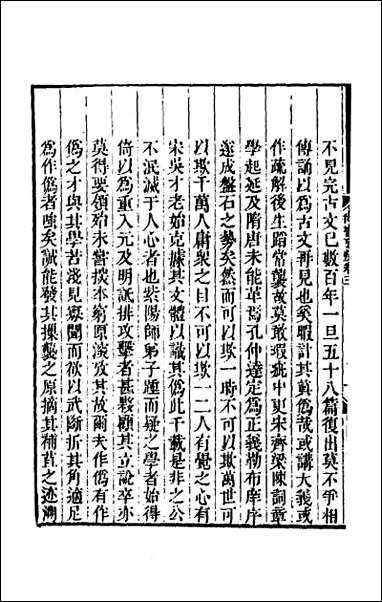 不見完古文已數百年一旦五十八篇復出莫不爭相
傳誦以爲古文再見也奚暇計其眞僞哉或講大義或
作疏解後生蹈常襲故莫敢瑕疵中更宋齊梁陳詞章
學起延及隋唐未能革焉孔仲達定爲正義勒布庠序
遂成盤石之勢矣然而可以欺一時不可以欺萬世可
以欺千萬人庸衆之目不可以欺一二人有覺之心有
宋吳才老始克據其文體以議其僞此千載是非之公
不泯滅于人心者也紫陽師弟子踵而疑之學者始得
倚以爲重入元及明詆排攻擊者甚夥顧其立說卒亦
莫得要領殆未嘗探本窮原深攷其故爾夫作僞有作
僞之才與其學若淺見寡聞而欲以武斷折其角適足
爲作僞者嗤矣誠能發其摷襲之原摘其補苴之迹溯